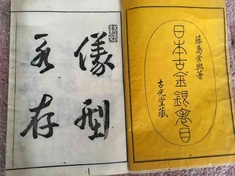 藤島常興著
日本古金銀目
古光堂藏
儀型
永存